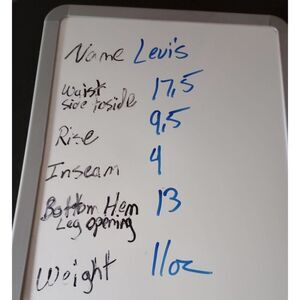 Name Levis
Waist 17,5
side inside
Rise 9,5
Inseam 4
Bottom Hem 13
Leg opening
Weight 11oz